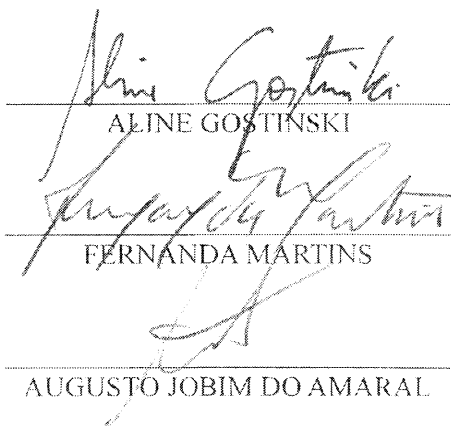 Aline Gostinski
ALINE GOSTINSKI
Fernanda Martins
FERNANDA MARTINS
AUGUSTO JOBIM DO AMARAL